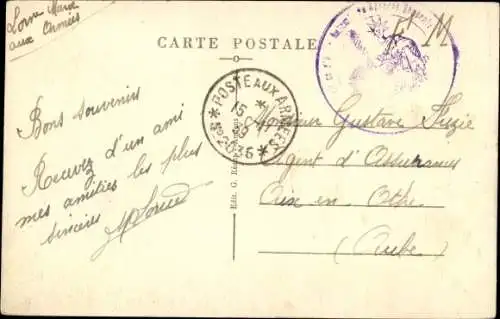 aux Armées
CARTE POSTALE
F. M
* POSTE AUX ARMEES *
15
39
N° 2036
Bons souvenirs
Recevez d'un ami
mes amitiés les plus
sincères
Edit. G.
Monsieur Gustave
Agent d'Assurances
Aix en Othe
(Aube)